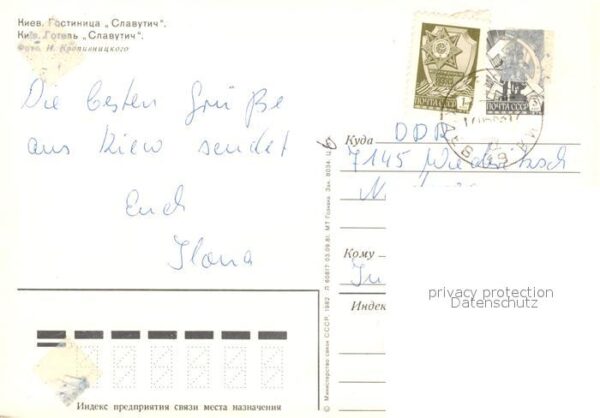 Киев. Гостиница „Славутич".
Київ. Готель „Славутич".
Фото. Н. Кропивницкого
Die besten Grüße
aus Kiew sendet
Euch
Ilona
ПОЧТА СССР
ПОЧТА СССР
Куда DDR
7145 Wiederitzsch
Кому
Индекс
privacy protection
Datenschutz
© Министерство связи СССР, 1982 Л 60817 03.09.81. МТ Гознака. Зак. 8034. Ц.
Индекс предприятия связи места назначения